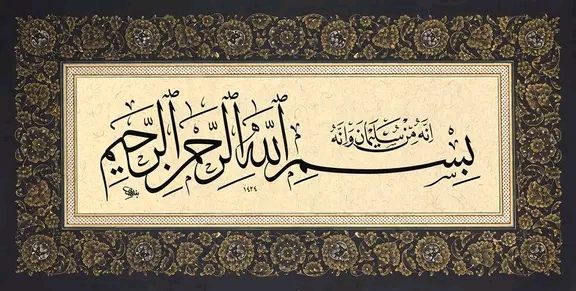 إنه من سليمان وإنه
بسم الله الرحمن الرحيم
١٤٢٤